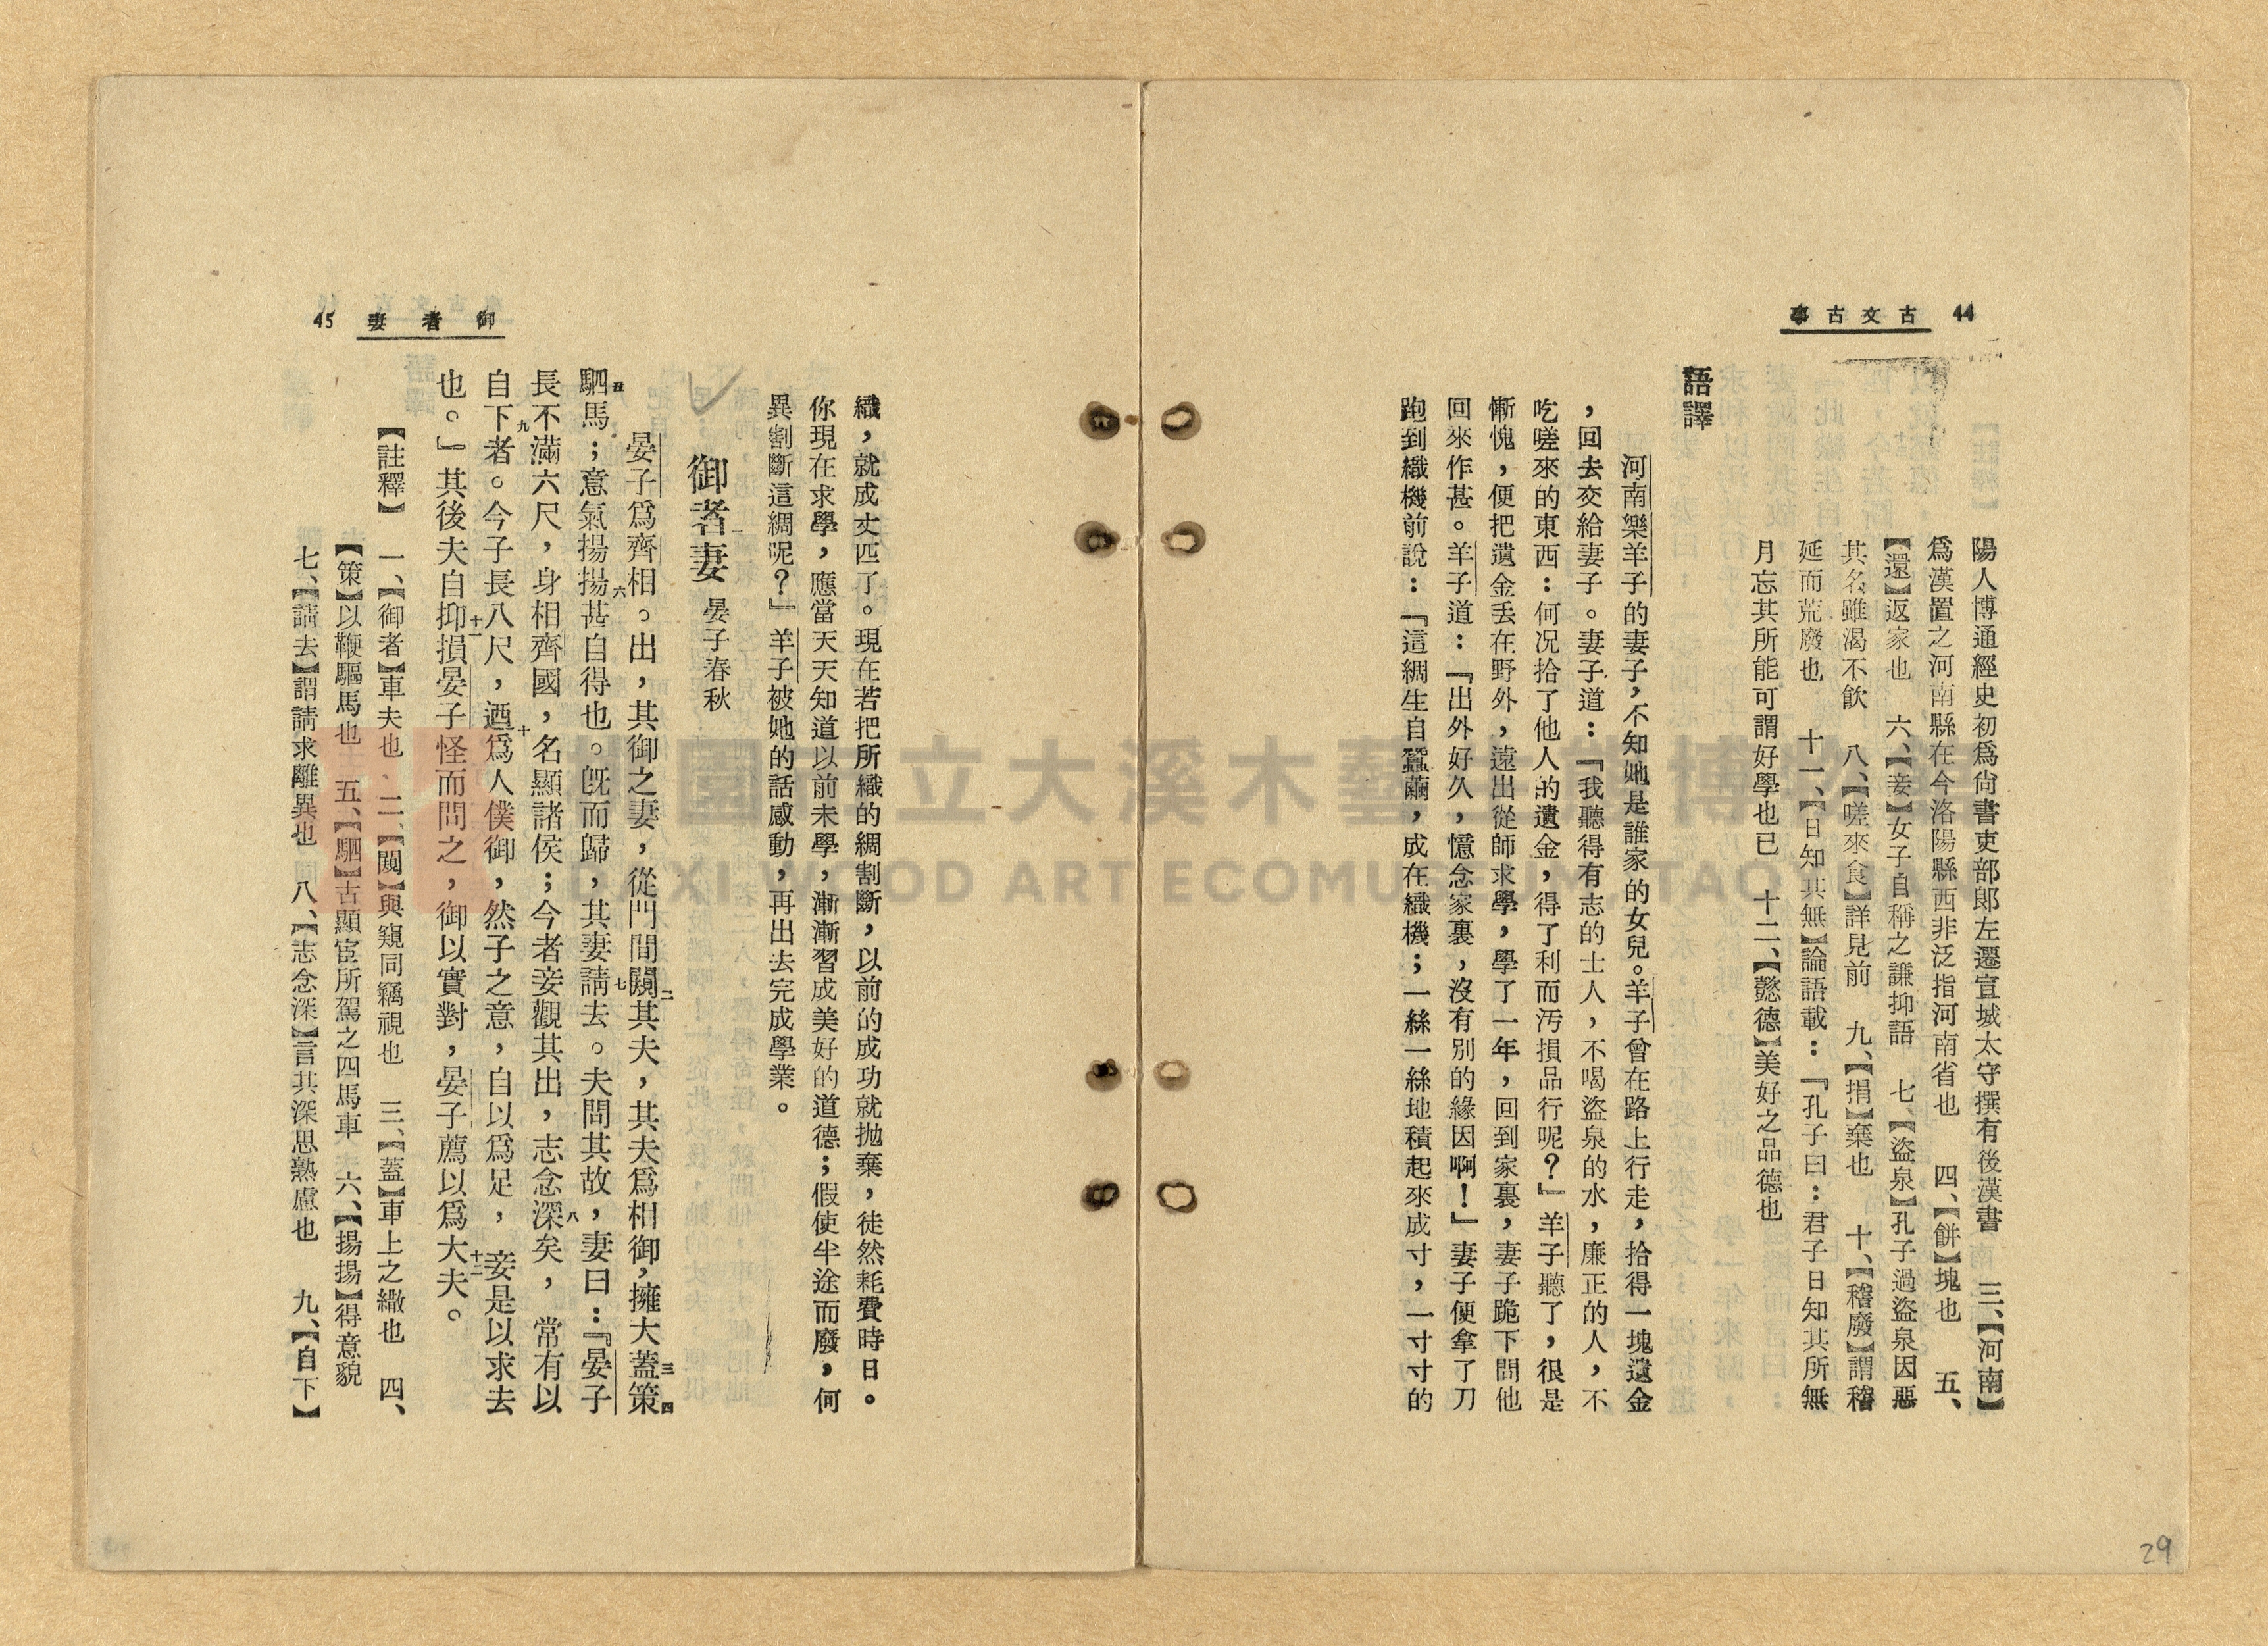 44 古文古事
陽人博通經史初爲尙書吏部郞左遷宣城太守撰有後漢書 三、【河南】
爲漢置之河南縣在今洛陽縣西非泛指河南省也 四、【餅】塊也 五、
【還】返家也 六、【妾】女子自稱之謙抑語 七、【盜泉】孔子過盜泉因惡
其名雖渴不飮 八、【嗟來食】詳見前 九、【捐】棄也 十、【稽廢】謂稽
延而荒廢也 十一、【日知其無】論語載：『孔子曰：君子日知其所無
月忘其所能可謂好學也已 十二、【懿德】美好之品德也
語譯
河南樂羊子的妻子，不知她是誰家的女兒。羊子曾在路上行走，拾得一塊遺金
，回去交給妻子。妻子道：『我聽得有志的士人，不喝盜泉的水，廉正的人，不
吃嗟來的東西：何況拾了他人的遺金，得了利而汚損品行呢？』羊子聽了，很是
慚愧，便把遺金丟在野外，遠出從師求學，學了一年，回到家裏，妻子跪下問他
回來作甚。羊子道：『出外好久，憶念家裏，沒有別的緣因啊！』妻子便拿了刀
跑到織機前說：『這綢生自蠶繭，成在織機；一絲一絲地積起來成寸，一寸寸的
織，就成丈匹了。現在若把所織的綢割斷，以前的成功就拋棄，徒然耗費時日。
你現在求學，應當天天知道以前未學，漸漸習成美好的道德；假使半途而廢，何
異割斷這綢呢？』羊子被她的話感動，再出去完成學業。
御者妻 晏子春秋
晏子爲齊相。出，其御之妻，從門間闚其夫，其夫爲相御，擁大蓋策
駟馬；意氣揚揚甚自得也。旣而歸，其妻請去。夫問其故，妻曰：『晏子
長不滿六尺，身相齊國，名顯諸侯；今者妾觀其出，志念深矣，常有以
自下者。今子長八尺，迺爲人僕御，然子之意，自以爲足，妾是以求去
也。』其後夫自抑損晏子怪而問之，御以實對，晏子薦以爲大夫。
【註釋】 一、【御者】車夫也 二、【闚】與窺同竊視也 三、【蓋】車上之繖也 四、
【策】以鞭驅馬也 五、【駟】古顯宦所駕之四馬車 六、【揚揚】得意貌
七、【請去】謂請求離異也 八、【志念深】言其深思熟慮也 九、【自下】
御者妻 45
29
桃園市立大溪木藝生態博物館
DAXI WOOD ART ECOMUSEUM, TAOYUAN